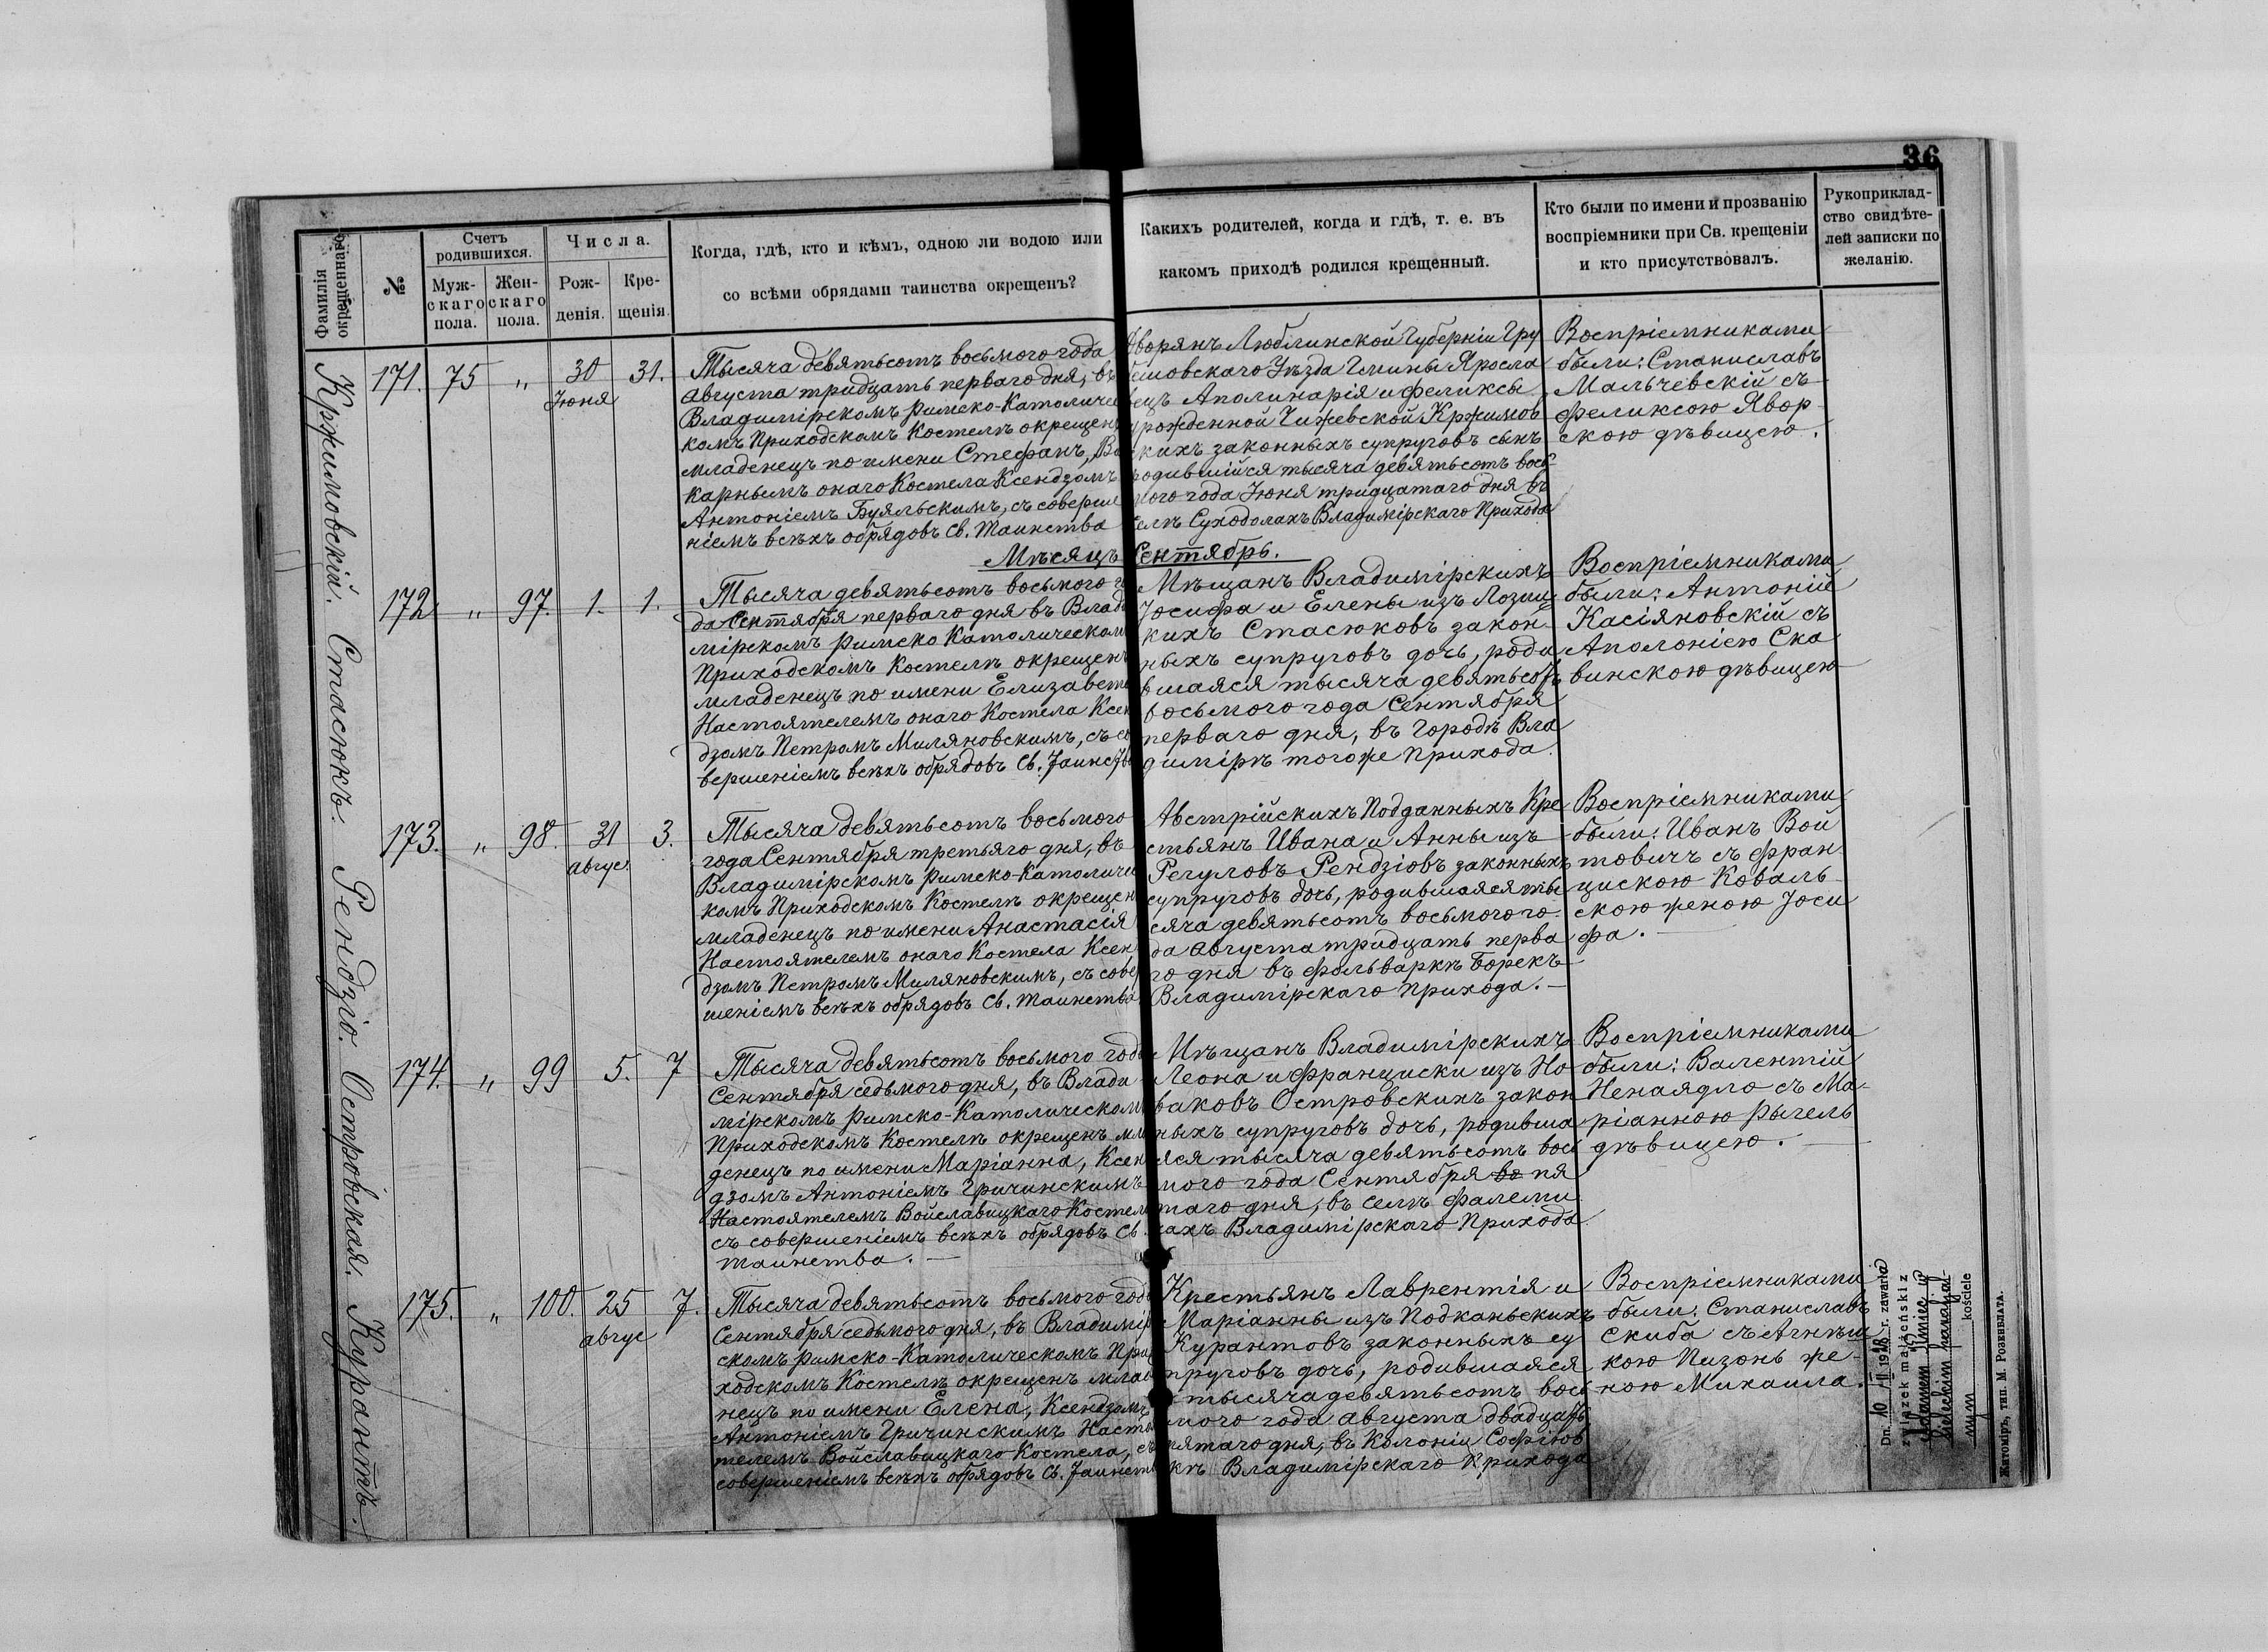 36
Фамилія окрещеннаго
№
Счетъ родившихся.
Муж-
скаго
пола.
Жен-
скаго
пола.
Числа.
Рож-
денія.
Кре-
щенія.
Когда, гдѣ, кто и кѣмъ, одною ли водою или
со всѣми обрядами таинства окрещенъ?
Какихъ родителей, когда и гдѣ, т. е. въ
какомъ приходѣ родился крещенный.
Кто были по имени и прозванію
воспріемники при Св. крещеніи
и кто присутствовалъ.
Рукоприклад-
ство свидѣте-
лей записки по
желанію.
Кржимовскій.
171. 75 " 30 Іюня 31.
Тысяча девятьсотъ восьмого года
Августа тридцать перваго дня, въ
Владимірскомъ Римско-Католичес
комъ Приходскомъ Костелѣ окрещенъ
младенецъ по имени Стефанъ, Ви
карнымъ онаго Костела Ксендзомъ
Антоніемъ Буяльскимъ, съ соверше
ніемъ всѣхъ обрядовъ Св. Таинства
Дворянъ Люблинской Губерніи Гру
бешовскаго Уѣзда Гмины Яросла
вецъ Аполинарія и Феликсы
урожденной Чижевской Кржимов
скихъ законныхъ супруговъ сынъ
родившійся тысяча девятьсотъ вось-
мого года Іюня тридцатаго дня въ
селѣ Суходолахъ Владимірскаго Прихода
Воспріемниками
были: Станиславъ
Мальчевскій съ
Феликсою Явор-
скою дѣвицею.
Мѣсяцъ Сентябрь.
Стасюкъ.
172. " 97. 1. 1.
Тысяча девятьсотъ восьмого го
да Сентября перваго дня въ Влади
мірскомъ Римско Католическом
Приходскомъ Костелѣ окрещенъ
младенецъ по имени Елизавета
Настоятелемъ онаго Костела Ксен
дзомъ Петромъ Миляновскимъ, съ со
вершеніемъ всѣхъ обрядовъ Св. Таинства
Мѣщанъ Владимірскихъ
Іосифа и Елены изъ Лозиц
кихъ Стасюковъ закон-
ныхъ супруговъ дочь, роди
вшаяся тысяча девятьсотъ
восьмого года Сентября
перваго дня, въ Городѣ Вла
димірѣ тогоже Прихода.
Воспріемниками
были: Антоній
Касіяновскій съ
Аполоніею Ска
винскою дѣвицею
Рендзіо.
173. " 98. 31 Авгус. 3.
Тысяча девятьсотъ восьмого
года Сентября третьяго дня, въ
Владимірскомъ Римско-Католичес
комъ Приходскомъ Костелѣ окрещен
младенецъ по имени Анастасія
Настоятелемъ онаго Костела Ксен
дзомъ Петромъ Миляновскимъ, съ совер
шеніемъ всѣхъ обрядовъ Св. Таинства
Австрійскихъ Подданныхъ Кре
стьянъ Ивана и Анны изъ
Регуловъ Рендзіовъ законныхъ
супруговъ дочь, родившаяся ты
сяча девятьсотъ восьмого го-
да Августа тридцать перва
го дня въ фольваркѣ Борекъ
Владимірскаго Прихода.
Воспріемниками
были: Иванъ Вой
товичъ съ Фран-
цискою Коваль-
скою женою Іоси
фа.
Островская.
174. " 99 5. 7
Тысяча девятьсотъ восьмого года
Сентября седьмого дня, въ Влади
мірскомъ Римско-Католическомъ
Приходскомъ Костелѣ окрещенъ мла
денецъ по имени Маріанна, Ксен
дзомъ Антоніемъ Гричинскимъ
Настоятелемъ Войславицкаго Костела
съ совершеніемъ всѣхъ обрядовъ Св.
Таинства.
Мѣщанъ Владимірскихъ
Леона и Франциски изъ Но-
ваковъ Островскихъ закон
ныхъ супруговъ дочь, родивша
яся тысяча девятьсотъ вось
мого года Сентября во пя
таго дня, въ селѣ Фалеми
чахъ Владимірскаго Прихода
Воспріемниками
были: Валентій
Ненаядло съ Ма-
ріанною Рычель
дѣвицею.
Курантъ.
175. " 100. 25 Авгус 7.
Тысяча девятьсотъ восьмого года
Сентября седьмого дня, въ Владимір
скомъ Римско-Католическомъ При
ходскомъ Костелѣ окрещенъ младе
нецъ по имени Елена, Ксендзомъ
Антоніемъ Гричинскимъ Настоя
телемъ Войславицкаго Костела, съ
совершеніемъ всѣхъ обрядовъ Св. Таинства
Крестьянъ Лаврентія и
Маріанны изъ Подканьскихъ
Курантовъ законныхъ су
пруговъ дочь, родившаяся
тысяча девятьсотъ вось
мого года Августа двадцать
пятаго дня, въ Колоніи Софіюв
кѣ Владимірскаго Прихода
Воспріемниками
были: Станиславъ
Скиба съ Агнѣш
кою Пизонь же-
ною Михаила.
Dn. 10 II 1928 r. zawarła
związek małżeński z
Adamem Jmiec w
kościele
Житоміръ, тип. М. Розенблата.